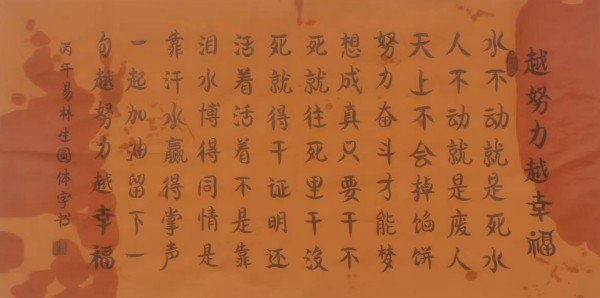 越努力越幸福
水不动就是死水
人不动就是废人
天上不会掉馅饼
努力奋斗才能梦
想成真只要干不
死就往死里干没
死就得干证明还
活着活着不是靠
泪水博得同情是
靠汗水赢得掌声
一起加油留下一
句越努力越幸福
丙午易林生圆体字书